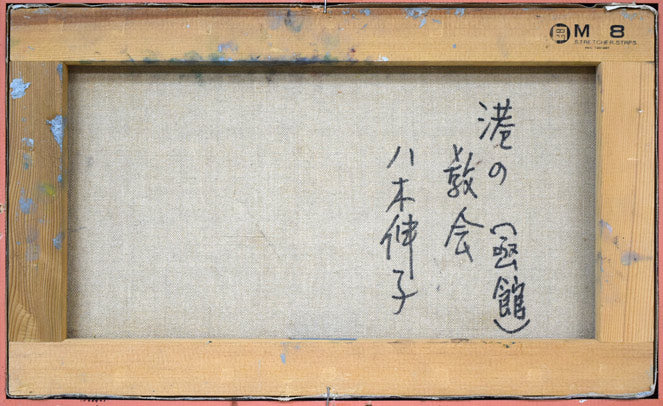 M 8
STRETCHER STRIPS
港の
教会
(函館)
八木伸子